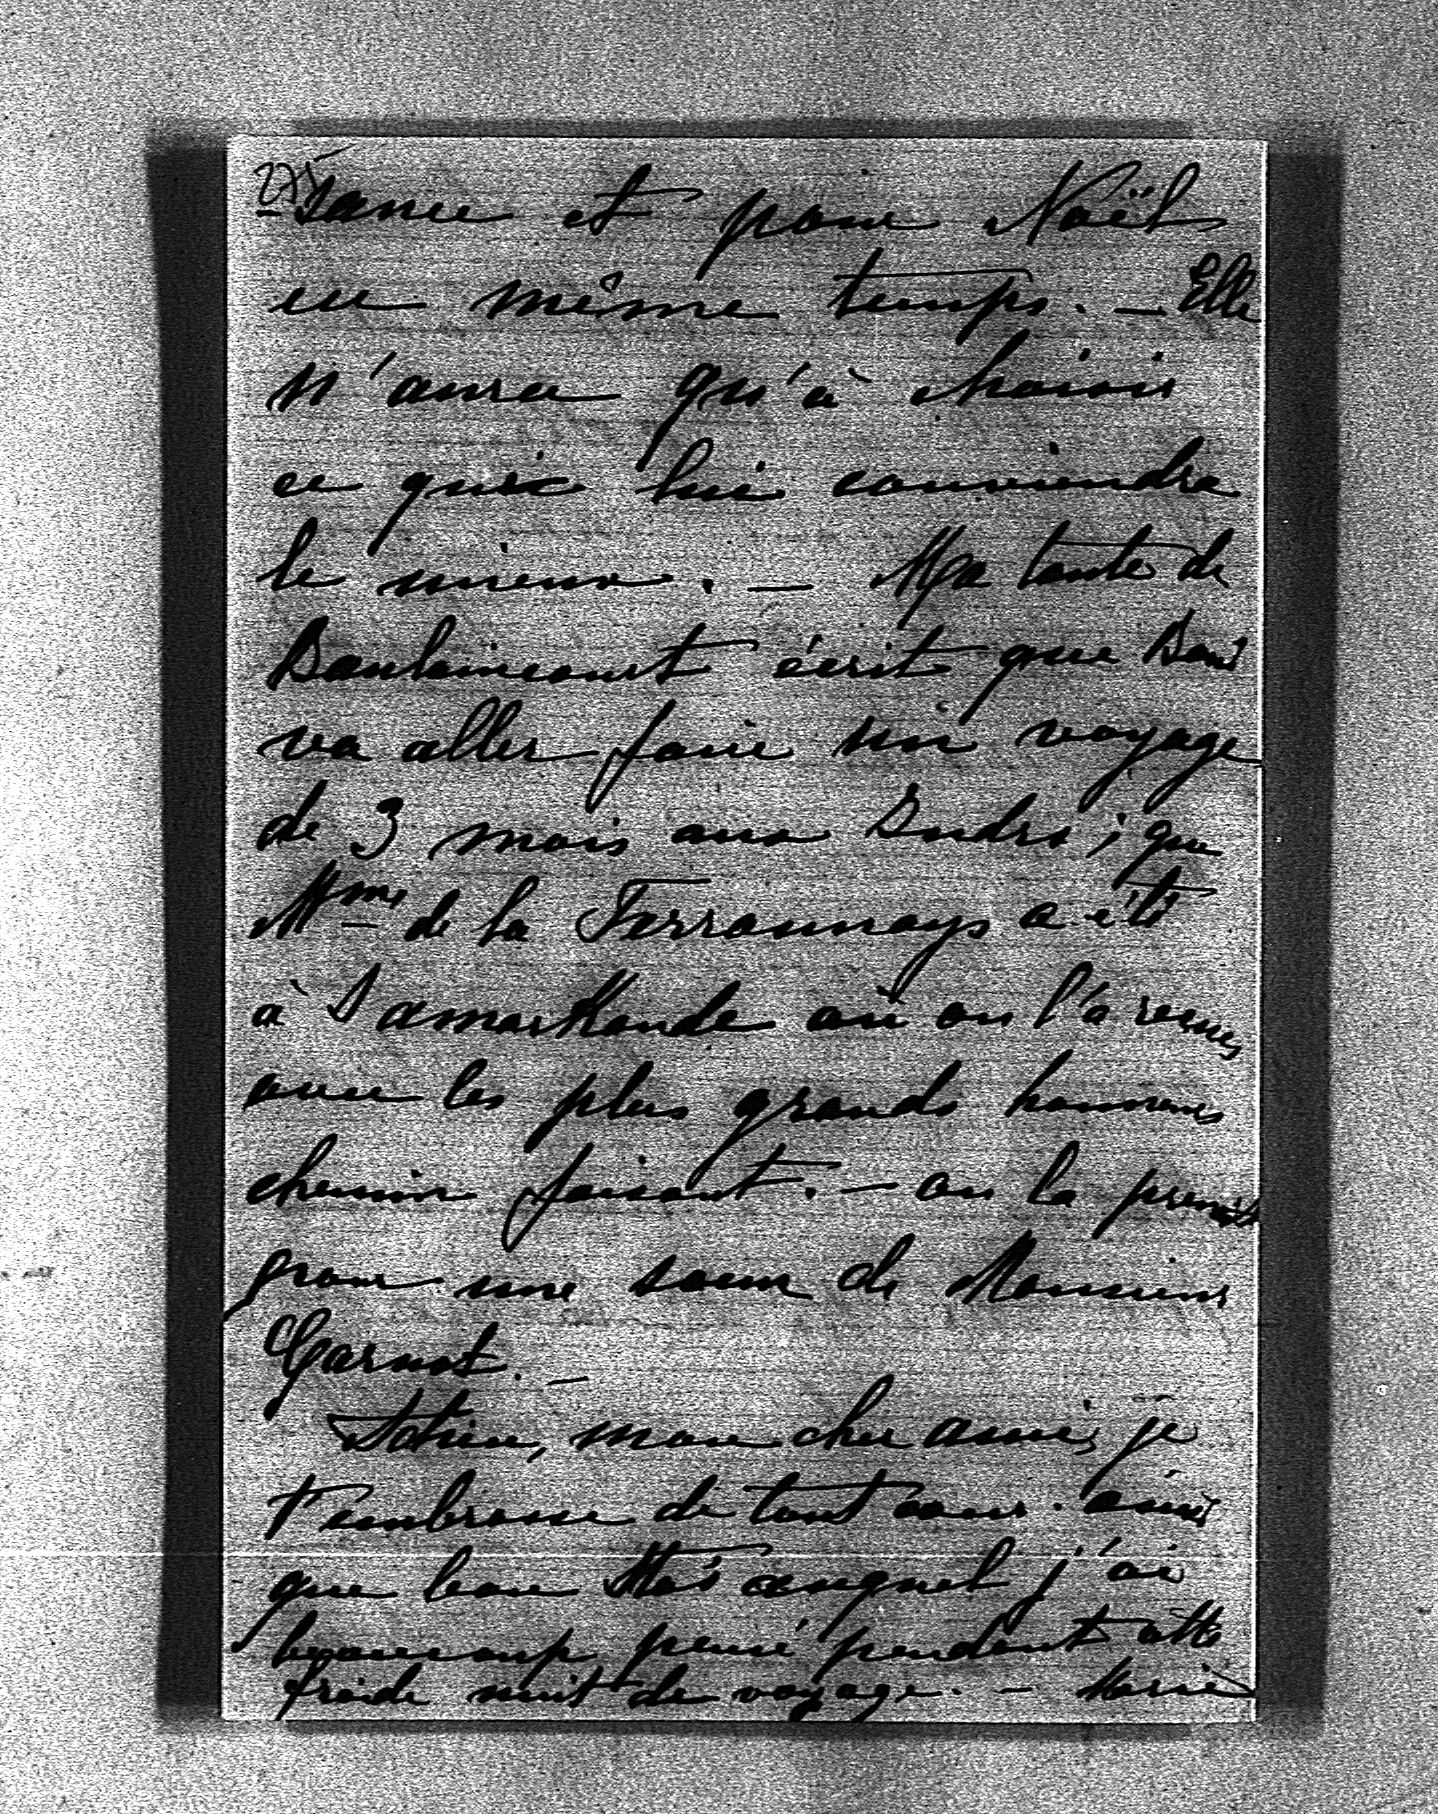 275
-sance et pour Noël
en même temps. — Elle
n'aura qu'à choisir
ce qui lui conviendra
le mieux. — Ma tante de
Baulaincourt écrit que
va aller faire un voyage
de 3 mois aux Indes ; que
Mme de la Ferronnays a été
à Samarkande où on l'a reçue
avec les plus grands honneurs
chemin faisant. — on la prenait
pour une sœur de Monsieur
Carnot. —
Adieu, mon cher ami, je
t'embrasse de tout cœur. ainsi
que bon j'ai
beaucoup pensé pendant cette
froide nuit de voyage. — Marie